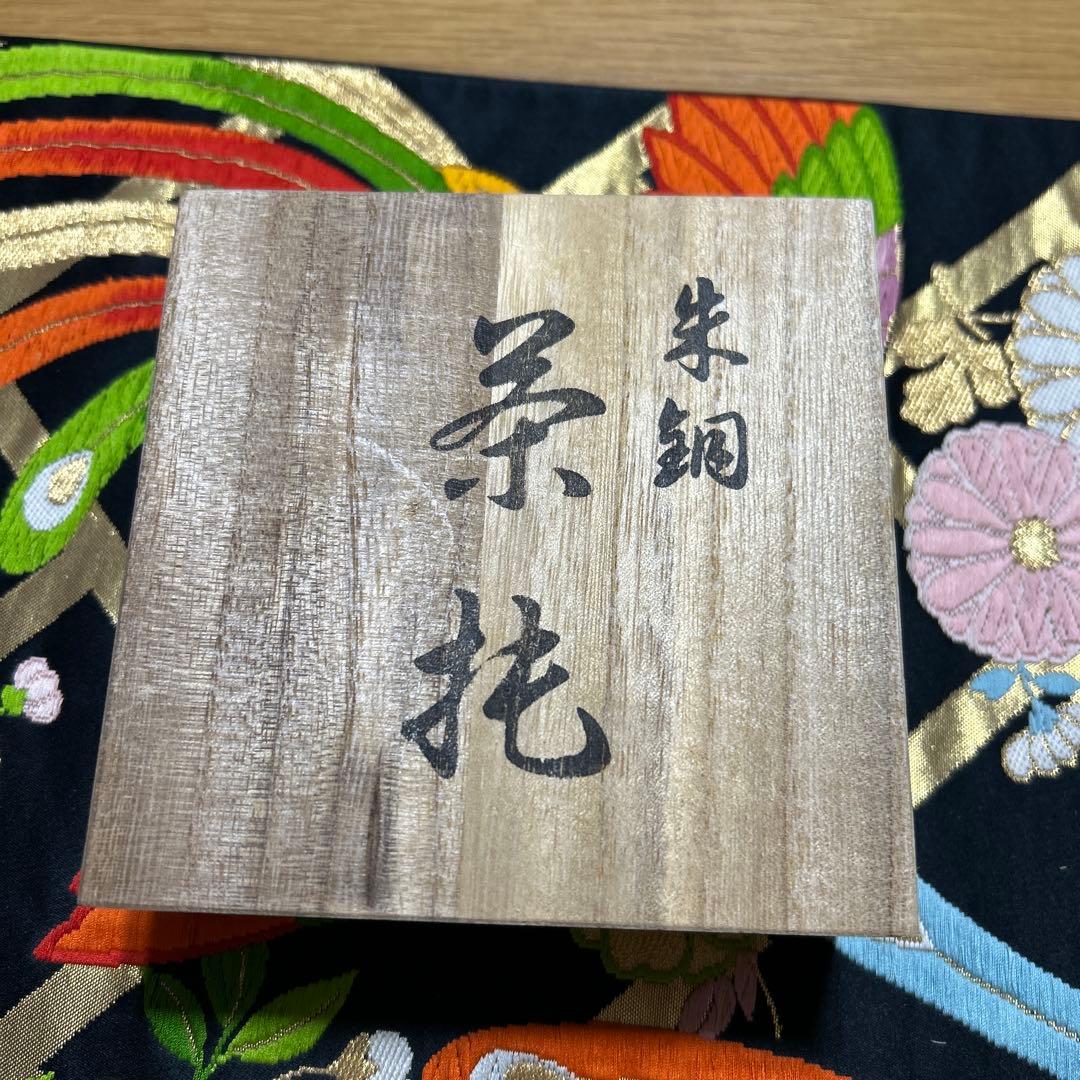 朱銅
茶托